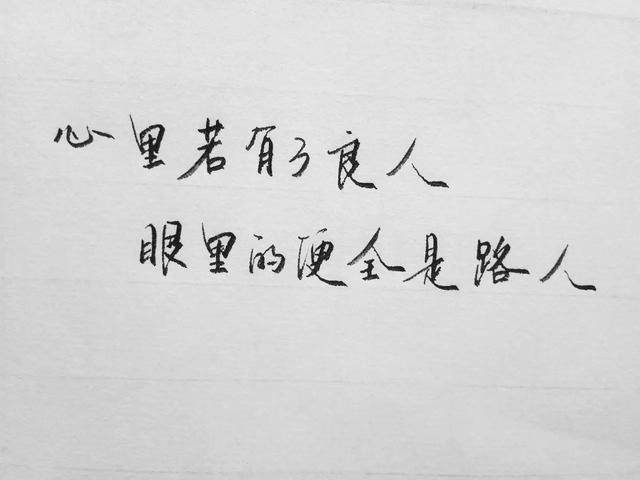 心里若有了良人
眼里的便全是路人